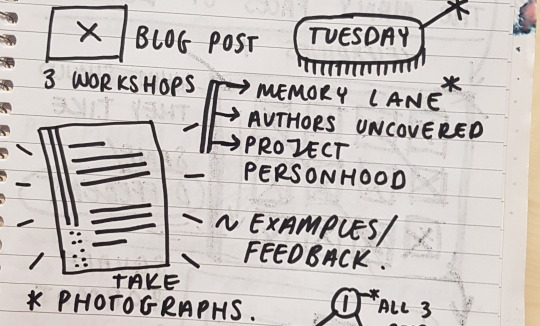 BLOG POST
TUESDAY
*
3 WORKSHOPS
MEMORY LANE*
AUTHORS UNCOVERED
PROJECT
PERSONHOOD
~ EXAMPLES/
FEEDBACK.
TAKE
* PHOTOGRAPHS.
1
*ALL 3